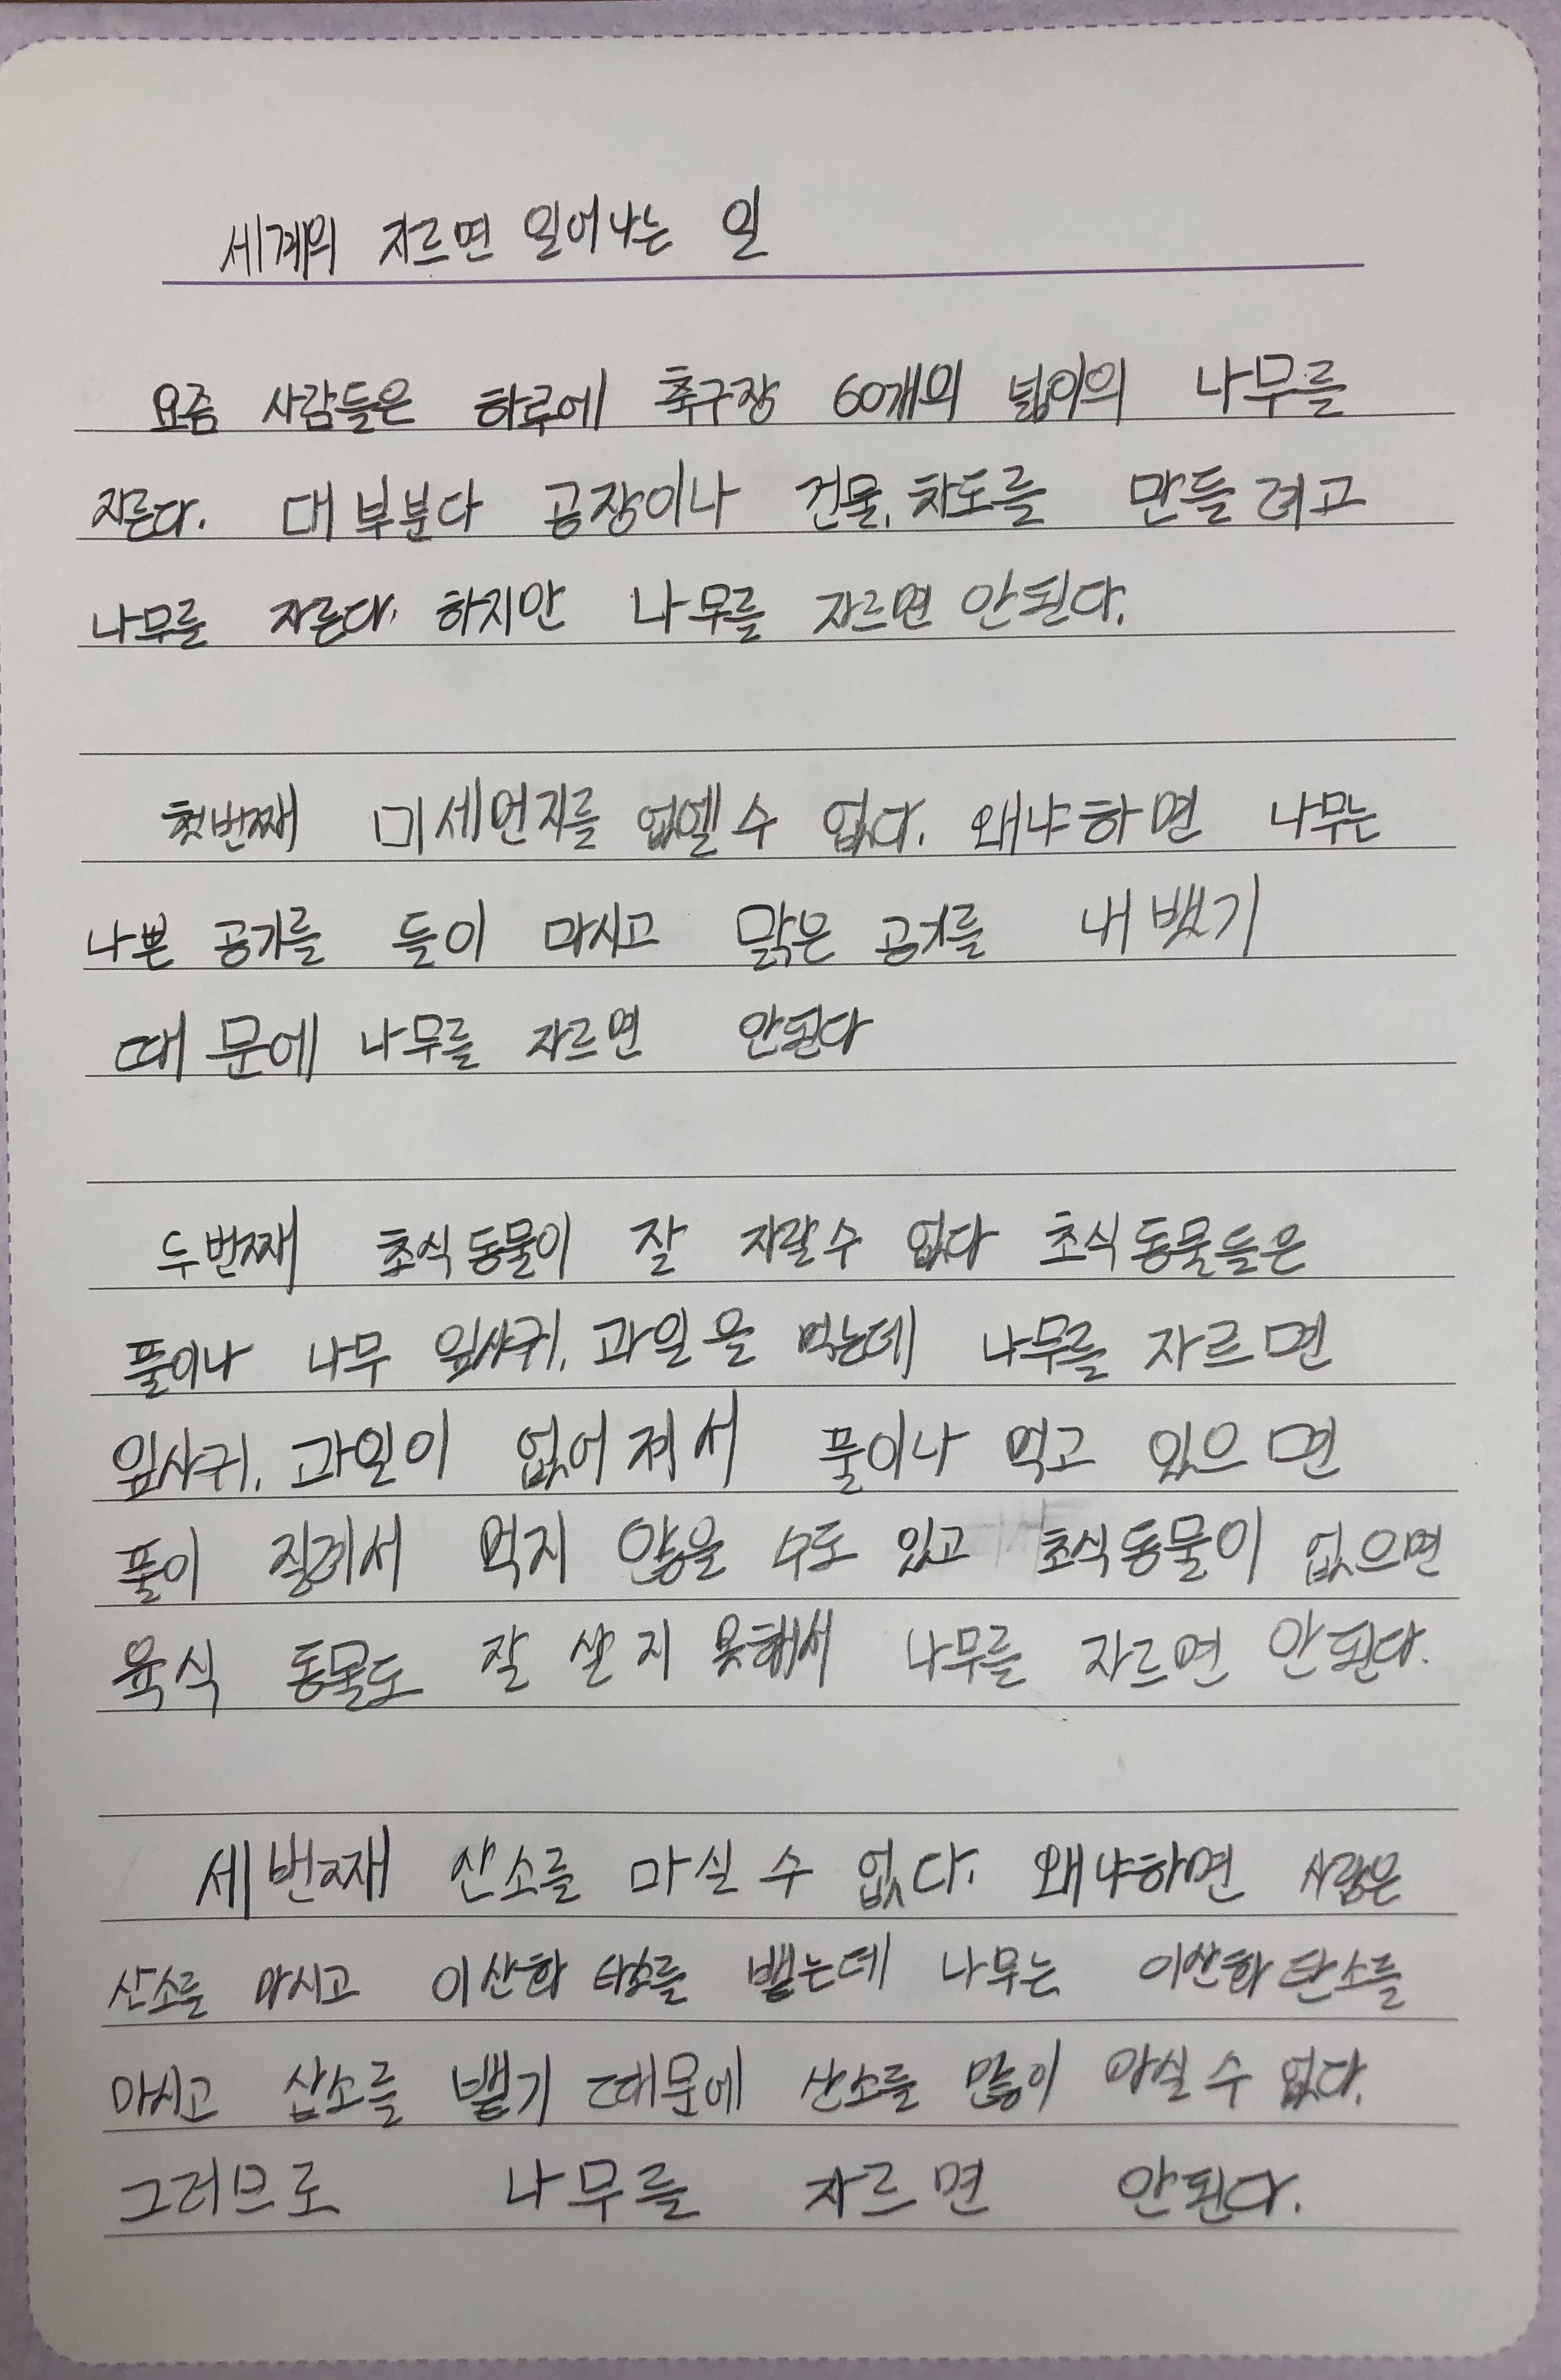 세계의 자르면 일어나는 일
요즘 사람들은 하루에 축구장 60개의 넓이의 나무를
자른다. 대부분다 공장이나 건물, 차도를 만들려고
나무를 자른다. 하지만 나무를 자르면 안된다.
첫번째 미세먼지를 없엘수 없다. 왜냐하면 나무는
나쁜 공기를 들이 마시고 맑은 공기를 내뱄기
때문에 나무를 자르면 안된다
두번째 초식동물이 잘 자랄수 없다 초식동물들은
풀이나 나무 잎사귀, 과일을 먹는데 나무를 자르면
잎사귀, 과일이 없어져서 풀이나 먹고 있으면
풀이 질려서 먹지 않을 수도 있고 초식동물이 없으면
육식 동물도 잘 살지 못해서 나무를 자르면 안된다.
세번째 산소를 마실 수 없다. 왜냐하면 사람은
산소를 마시고 이산화 탄소를 뱉는데 나무는 이산화탄소를
마시고 산소를 뱉기 때문에 산소를 많이 마실 수 없다.
그러므로 나무를 자르면 안된다.